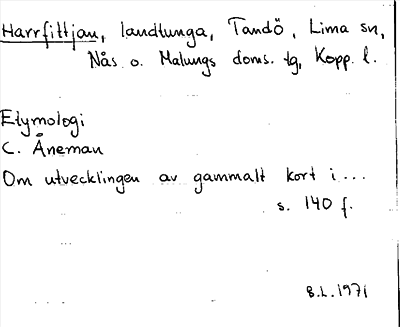 Harrfittjan, landtunga, Tandö, Lima sn,
Nås o. Malungs doms. tg, Kopp. l.
Etymologi
C. Åneman
Om utvecklingen av gammalt kort i...
s. 140 f.
B.L. 1971